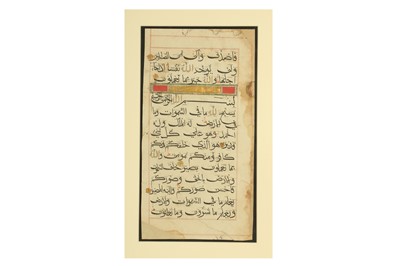 فاصدق واكن من الصالحين
ولن يؤخر الله نفسا اذا جاء
اجلها والله خبير بما تعملون
بسم الله الرحمن الرحيم
يسبح لله ما في السموات وما
في الارض له الملك وله
الحمد وهو على كل شيء
قدير هو الذي خلقكم فمنكم
كافر ومنكم مؤمن والله
بما تعملون بصير خلق السموات
والارض بالحق وصوركم
فاحسن صوركم واليه المصير
يعلم ما في السموات والارض
ويعلم ما تسرون وما تعلنون